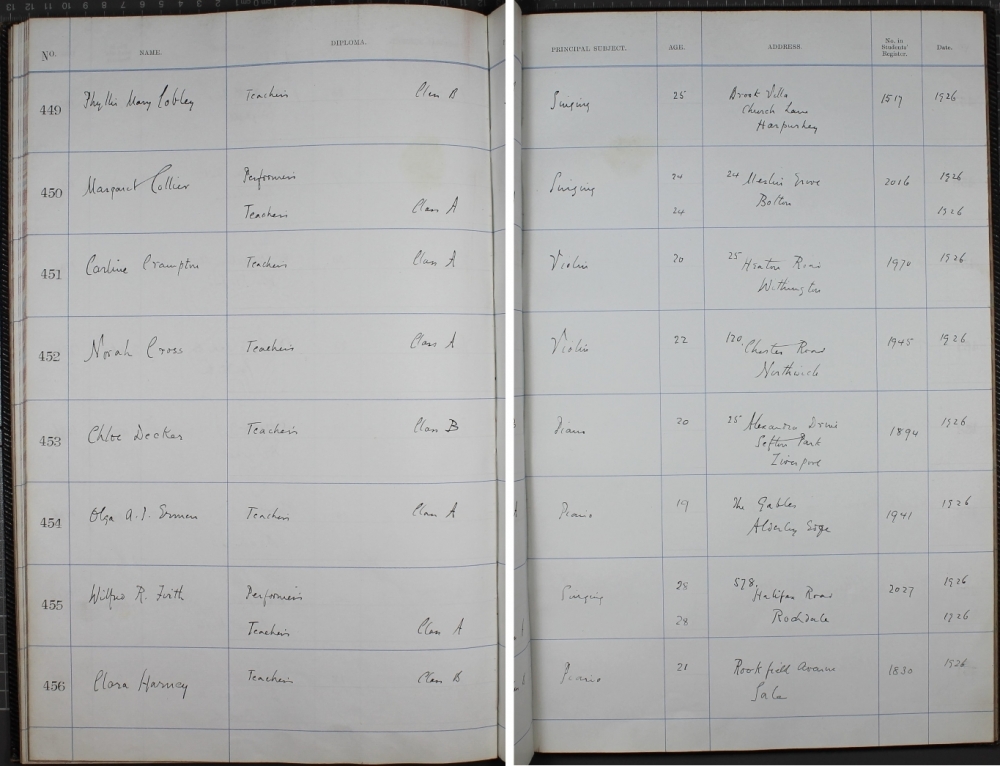 No. NAME. DIPLOMA. PRINCIPAL SUBJECT. AGE. ADDRESS. No. in Students' Register. Date.
449 Phyllis Mary Cobley Teachers Class B Singing 25 Brook Villa 1517 1926
Church Lane
Harpurhey
450 Margaret Collier Performers Singing 24 24 Grove 2016 1926
Teachers Class A 24 Bolton 1926
451 Crampton Teachers Class A Violin 20 25 Heaton Road 1970 1926
Withington
452 Norah Cross Teachers Class A Violin 22 120, Chester Road 1945 1926
Northwich
453 Chloe Decker Teachers Class B Piano 20 25 Alexandra Drive 1894 1926
Sefton Park
Liverpool
454 Olga A. J. Teachers Class A Piano 19 The Gables 1941 1926
Alderley Edge
455 Wilfrid R. Firth Performers Singing 28 578, Halifax Road 2027 1926
Teachers Class A 28 Rochdale 1926
456 Clara Harney Teachers Class B Piano 21 Rookfield Avenue 1830 1926
Sale